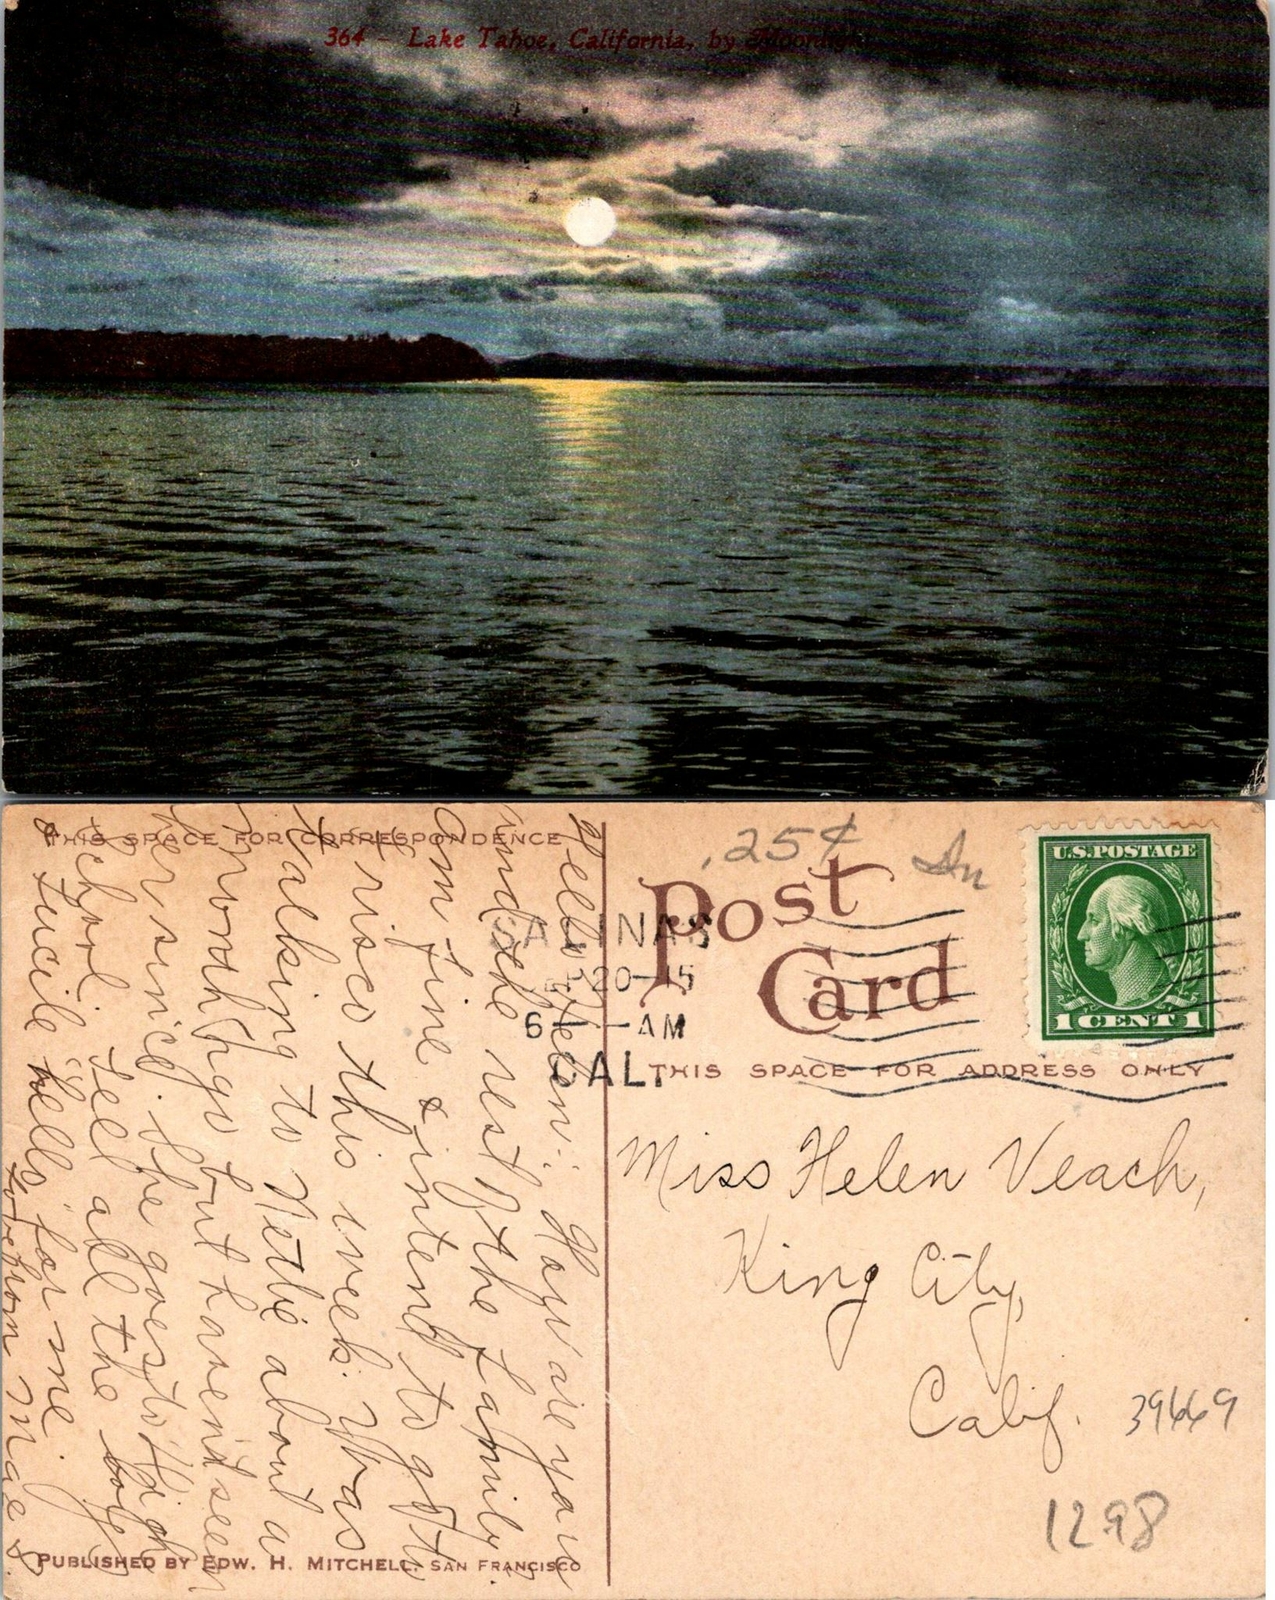 364 — Lake Tahoe, California, by Moonlight
THIS SPACE FOR CORRESPONDENCE
Hello Helen: How are you
and the rest of the family.
Am fine & intend to go to
Frisco this week. Was
talking to Nettie about a
month ago but haven't seen
her since. She goes to High
School. Tell all the boys
& Lucile "hello" for me.
Love from Mae S.
PUBLISHED BY EDW. H. MITCHELL, SAN FRANCISCO
.25¢
Post
Card
U.S. POSTAGE
1 CENT 1
SALINAS
20-15
6 -AM
CAL.
THIS SPACE FOR ADDRESS ONLY
Miss Helen Veach,
King City,
Calif.
39669
1298